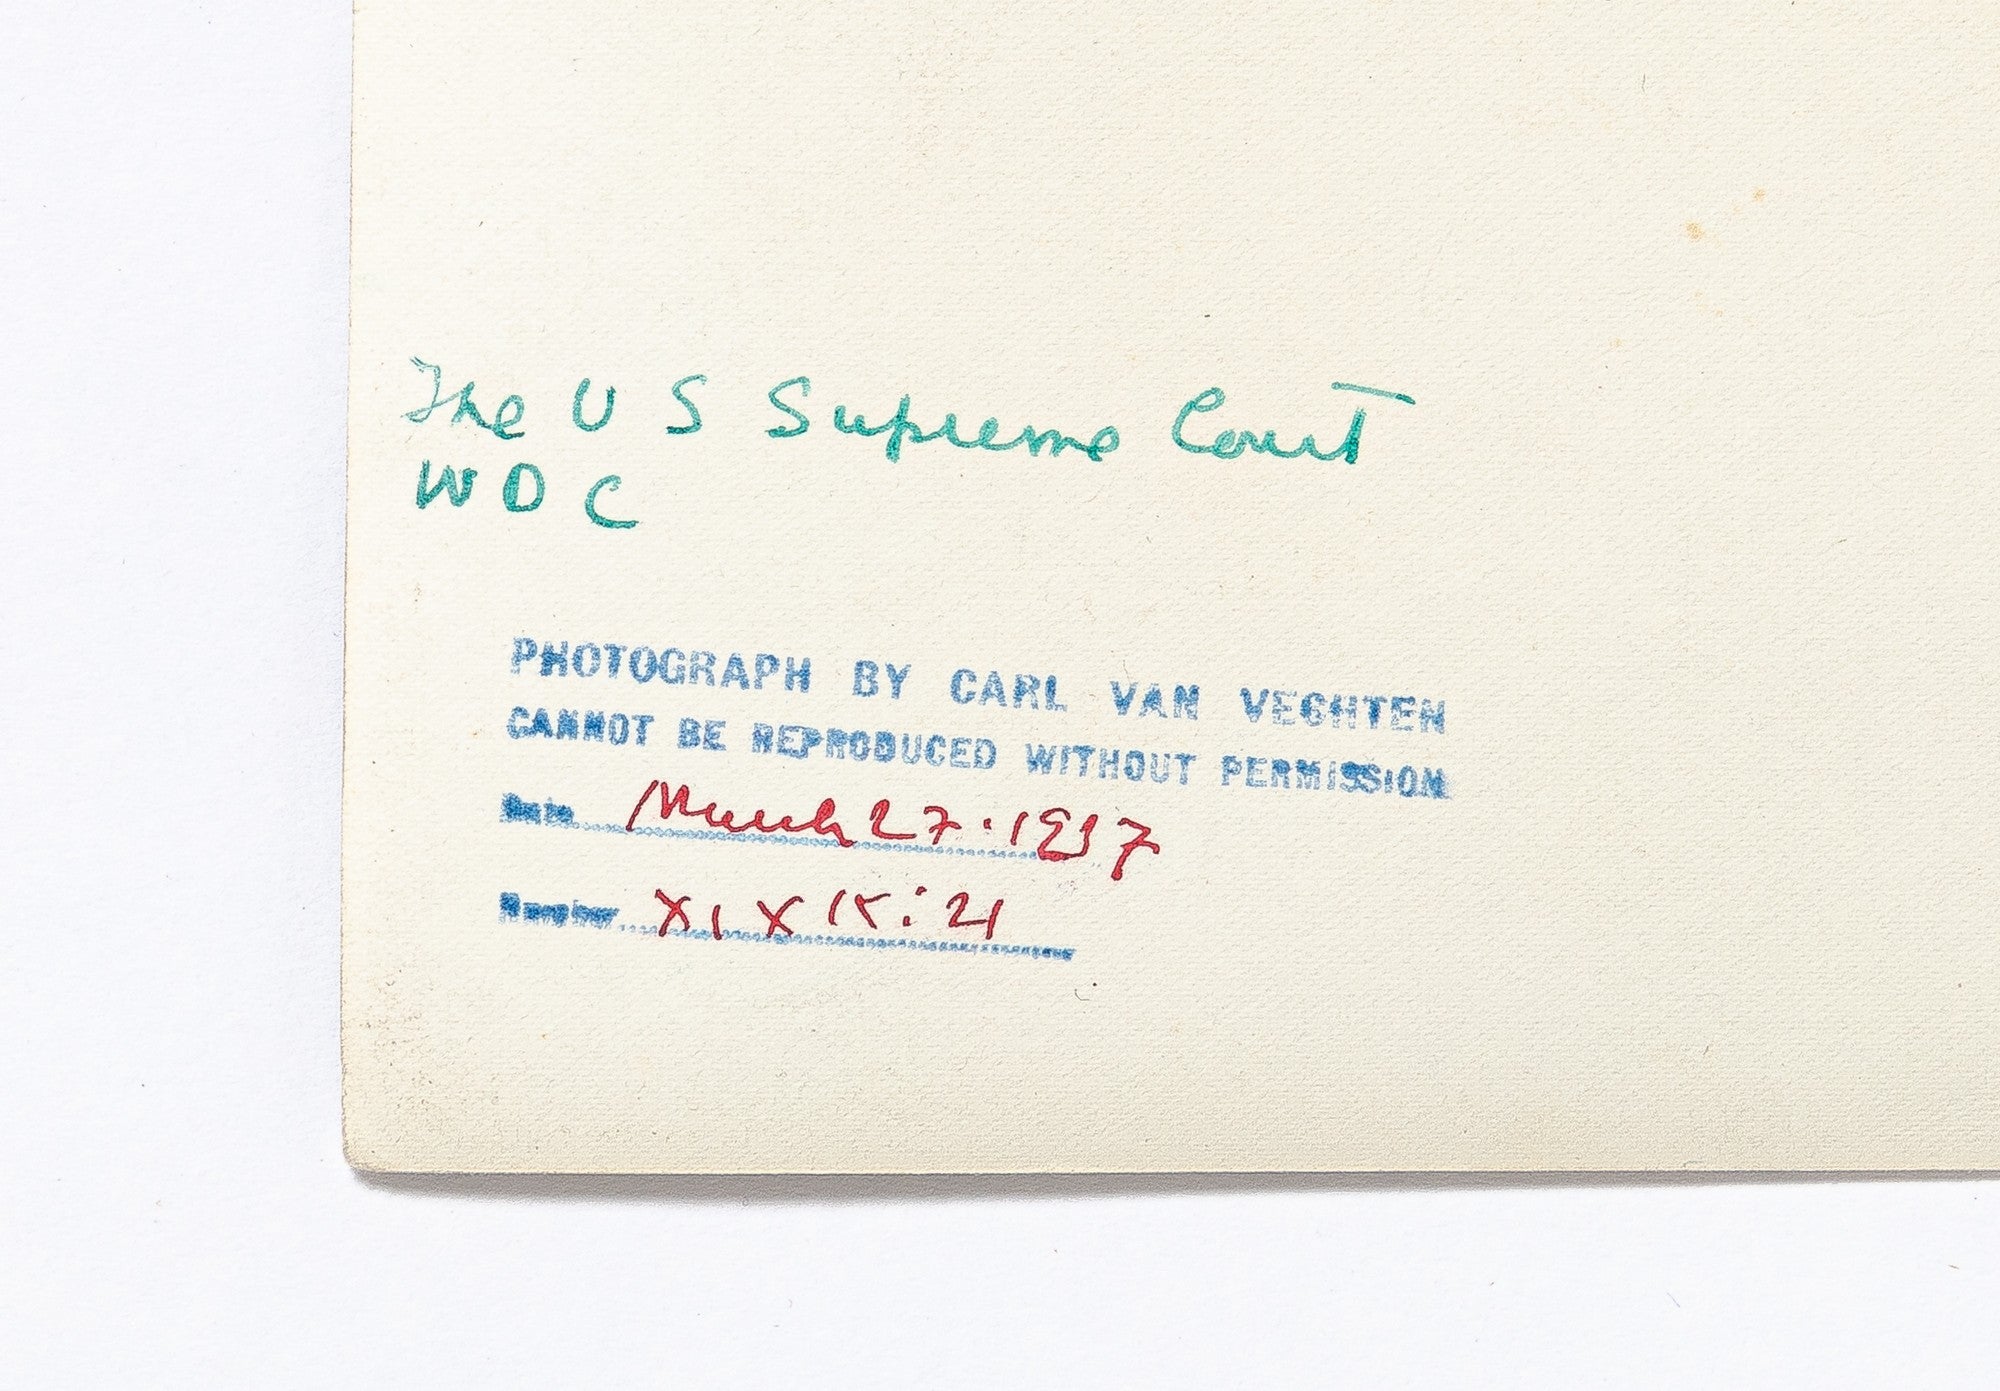 The U S Supreme Court
W D C
PHOTOGRAPH BY CARL VAN VECHTEN
CANNOT BE REPRODUCED WITHOUT PERMISSION
Date March 27 · 1937
Number X I X : 21